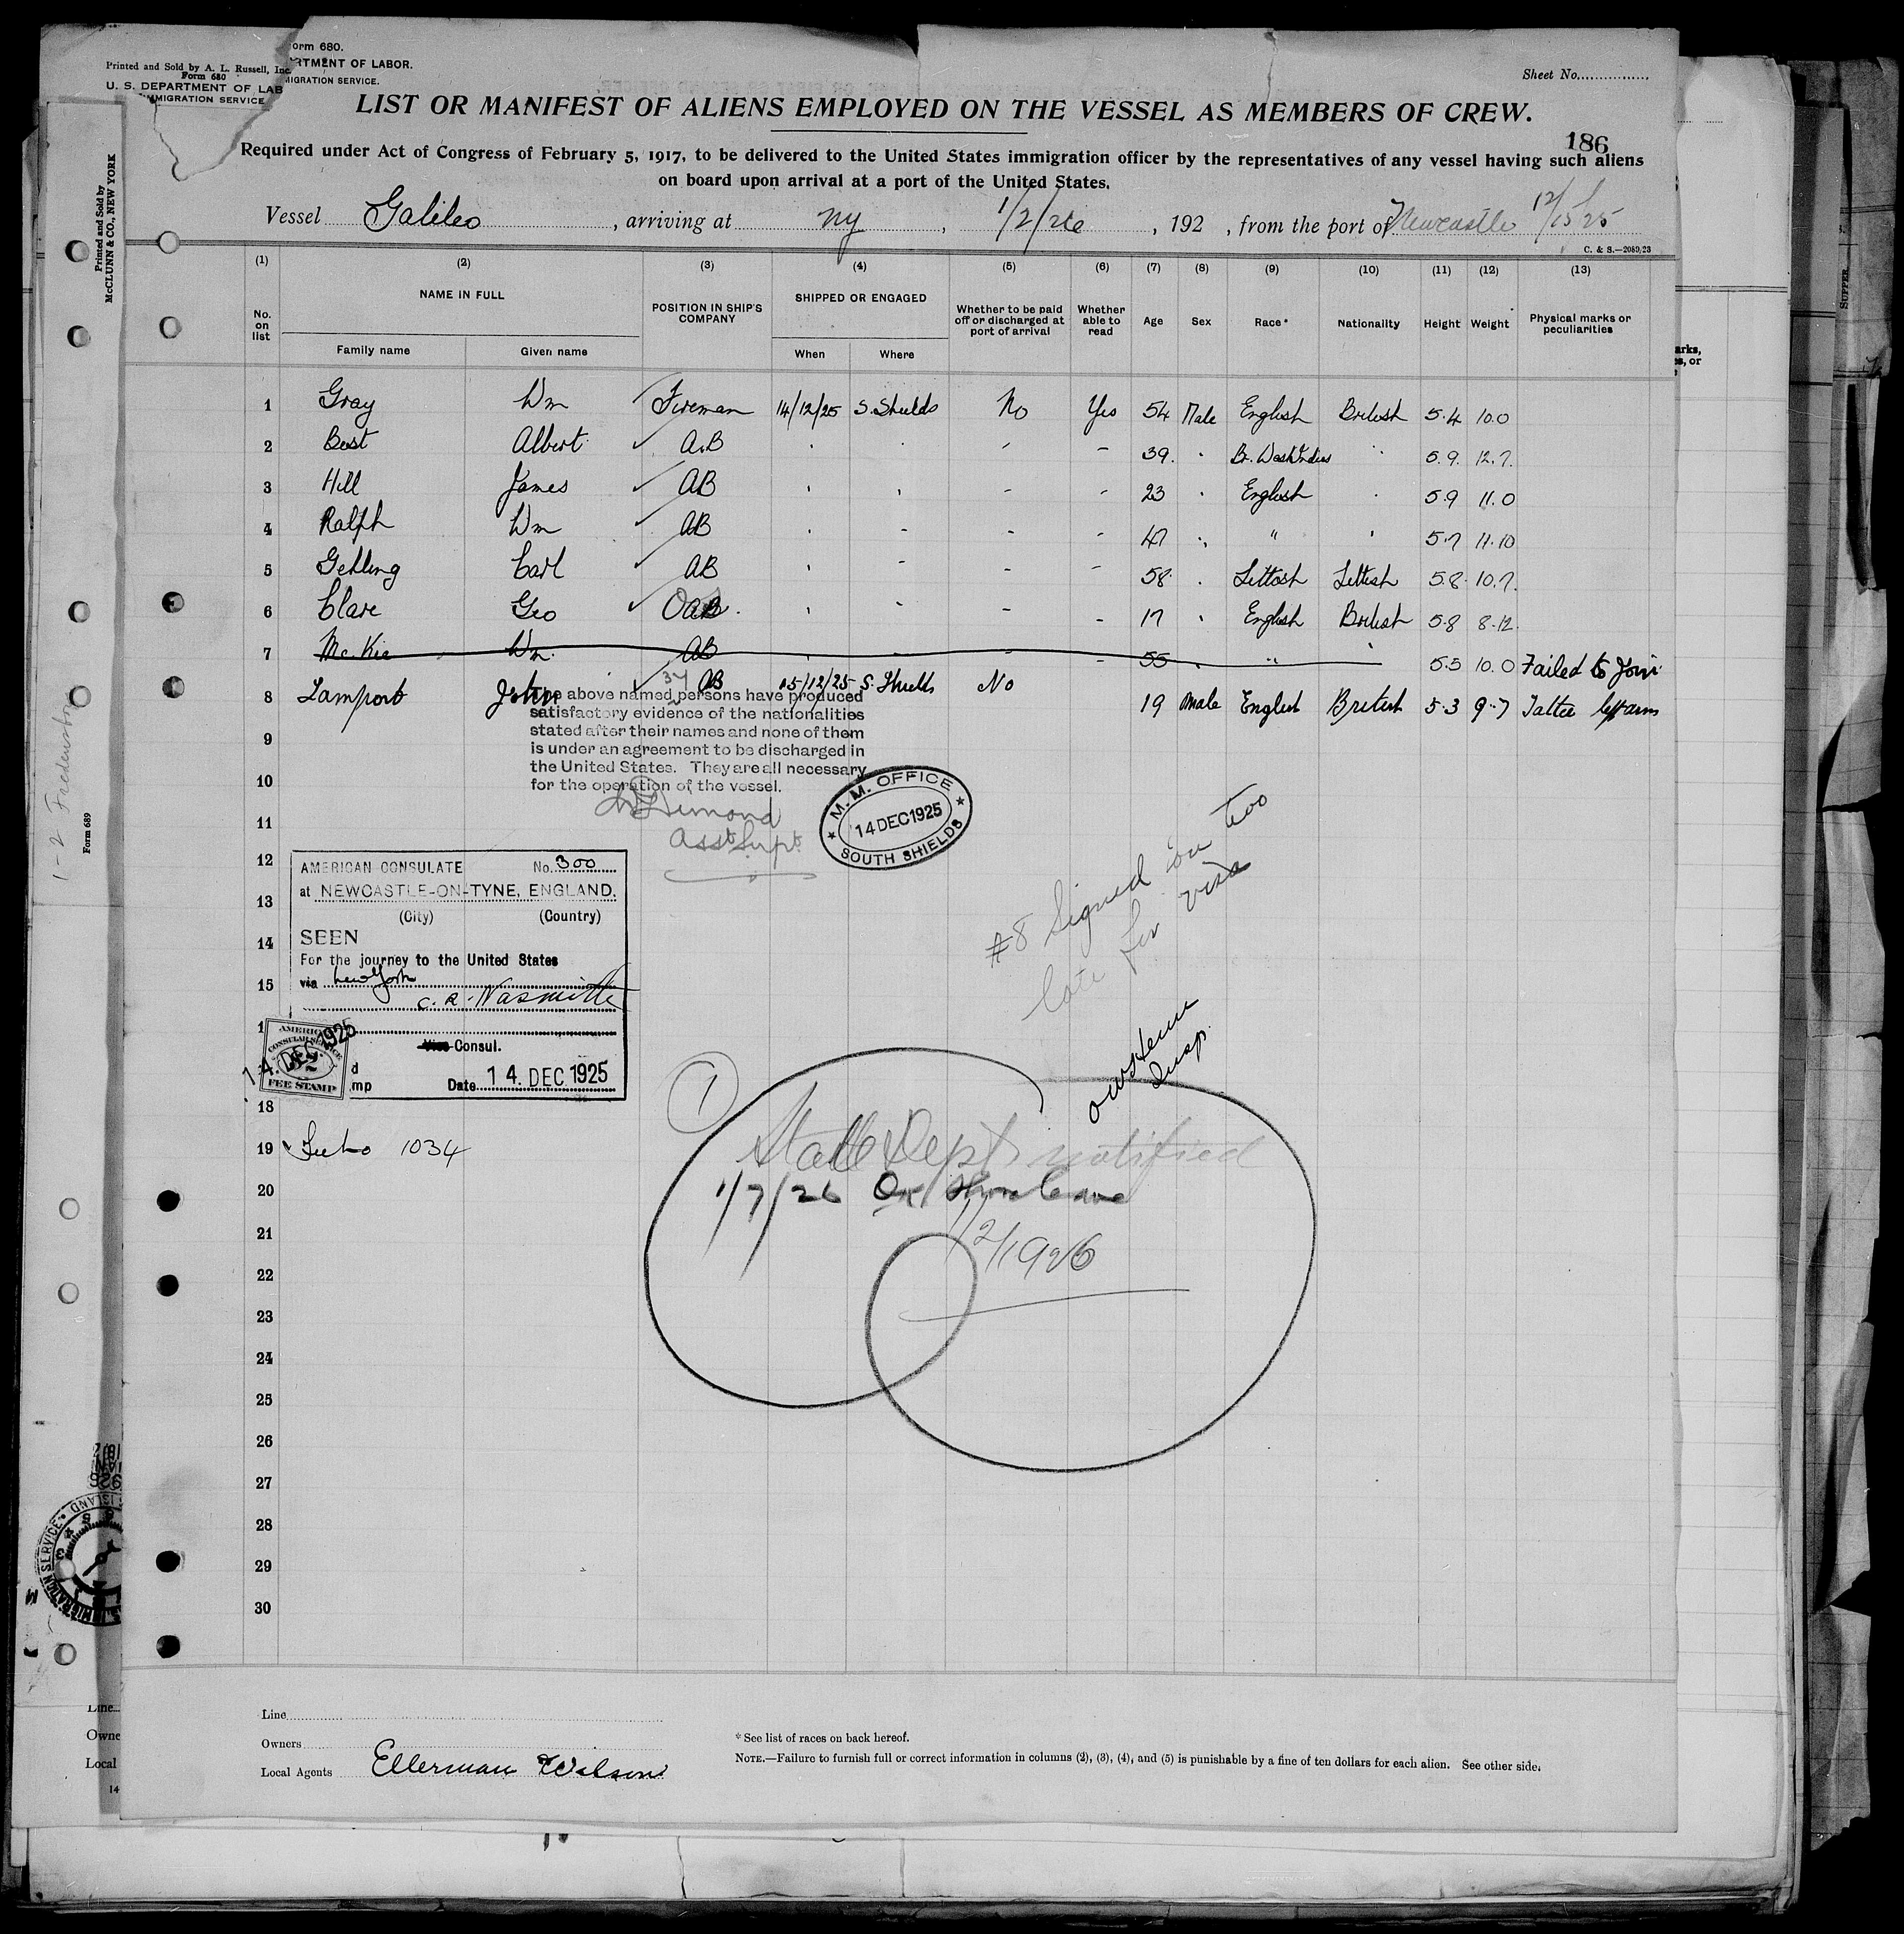 Form 680.
Printed and Sold by A. L. Russell, Inc.
Form 680
U. S. DEPARTMENT OF LAB
IMMIGRATION SERVICE
RTMENT OF LABOR.
MIGRATION SERVICE.
Sheet No.
LIST OR MANIFEST OF ALIENS EMPLOYED ON THE VESSEL AS MEMBERS OF CREW.
186
Required under Act of Congress of February 5, 1917, to be delivered to the United States immigration officer by the representatives of any vessel having such aliens
on board upon arrival at a port of the United States.
Vessel Galileo, arriving at NY, 1/2/26, 192 , from the port of Newcastle 12/15/25
C. & S.—2089/23
Printed and Sold by
McCLUNN & CO., NEW YORK
(1) (2) (3) (4) (5) (6) (7) (8) (9) (10) (11) (12) (13)
No. on list
NAME IN FULL
Family name Given name
POSITION IN SHIP'S COMPANY
SHIPPED OR ENGAGED
When Where
Whether to be paid off or discharged at port of arrival
Whether able to read
Age Sex Race* Nationality Height Weight
Physical marks or peculiarities
1 Gray Wm Fireman 14/12/25 S. Shields No Yes 54 Male English British 5.4 10.0
2 Best Albert A.B 39 Br. West Indies 5.9 12.7
3 Hill James AB 23 English 5.9 11.0
4 Ralph Wm AB 47 " 5.7 11.10
5 Gehling Carl AB 58 Lettish Lettish 5.8 10.7
6 Clare Geo 17 English British 5.8 8.12
7 McKie Wm AB 55 " 5.5 10.0 Failed to Join
8 Lamport John AB 15/12/25 S. Shields No 19 Male English British 5.3 9.7 Tattoo left arm
above named persons have produced
satisfactory evidence of the nationalities
stated after their names and none of them
is under an agreement to be discharged in
the United States. They are all necessary
for the operation of the vessel.
Asst Supt
M. M. OFFICE
14 DEC 1925
SOUTH SHIELDS
9
10
11
12
13
14
15
18
19
20
21
22
23
24
25
26
27
28
29
30
AMERICAN CONSULATE No. 300
at NEWCASTLE-ON-TYNE, ENGLAND.
(City) (Country)
SEEN
For the journey to the United States
via New York
C. R. Nasmith
Vice Consul.
Date 14 DEC 1925
AMERICAN
CONSULAR SERVICE
FEE STAMP
14 DEC 1925
#8 Signed on too
late for visa
Insp.
1
State Dept. notified
1/7/26
1/2/1926
1034
1-2 Fredenston
Form 689
IMMIGRATION SERVICE
Line
Owners
Local Agents Ellerman Wilson
* See list of races on back hereof.
NOTE.—Failure to furnish full or correct information in columns (2), (3), (4), and (5) is punishable by a fine of ten dollars for each alien. See other side.
Line
Owne
Local
14